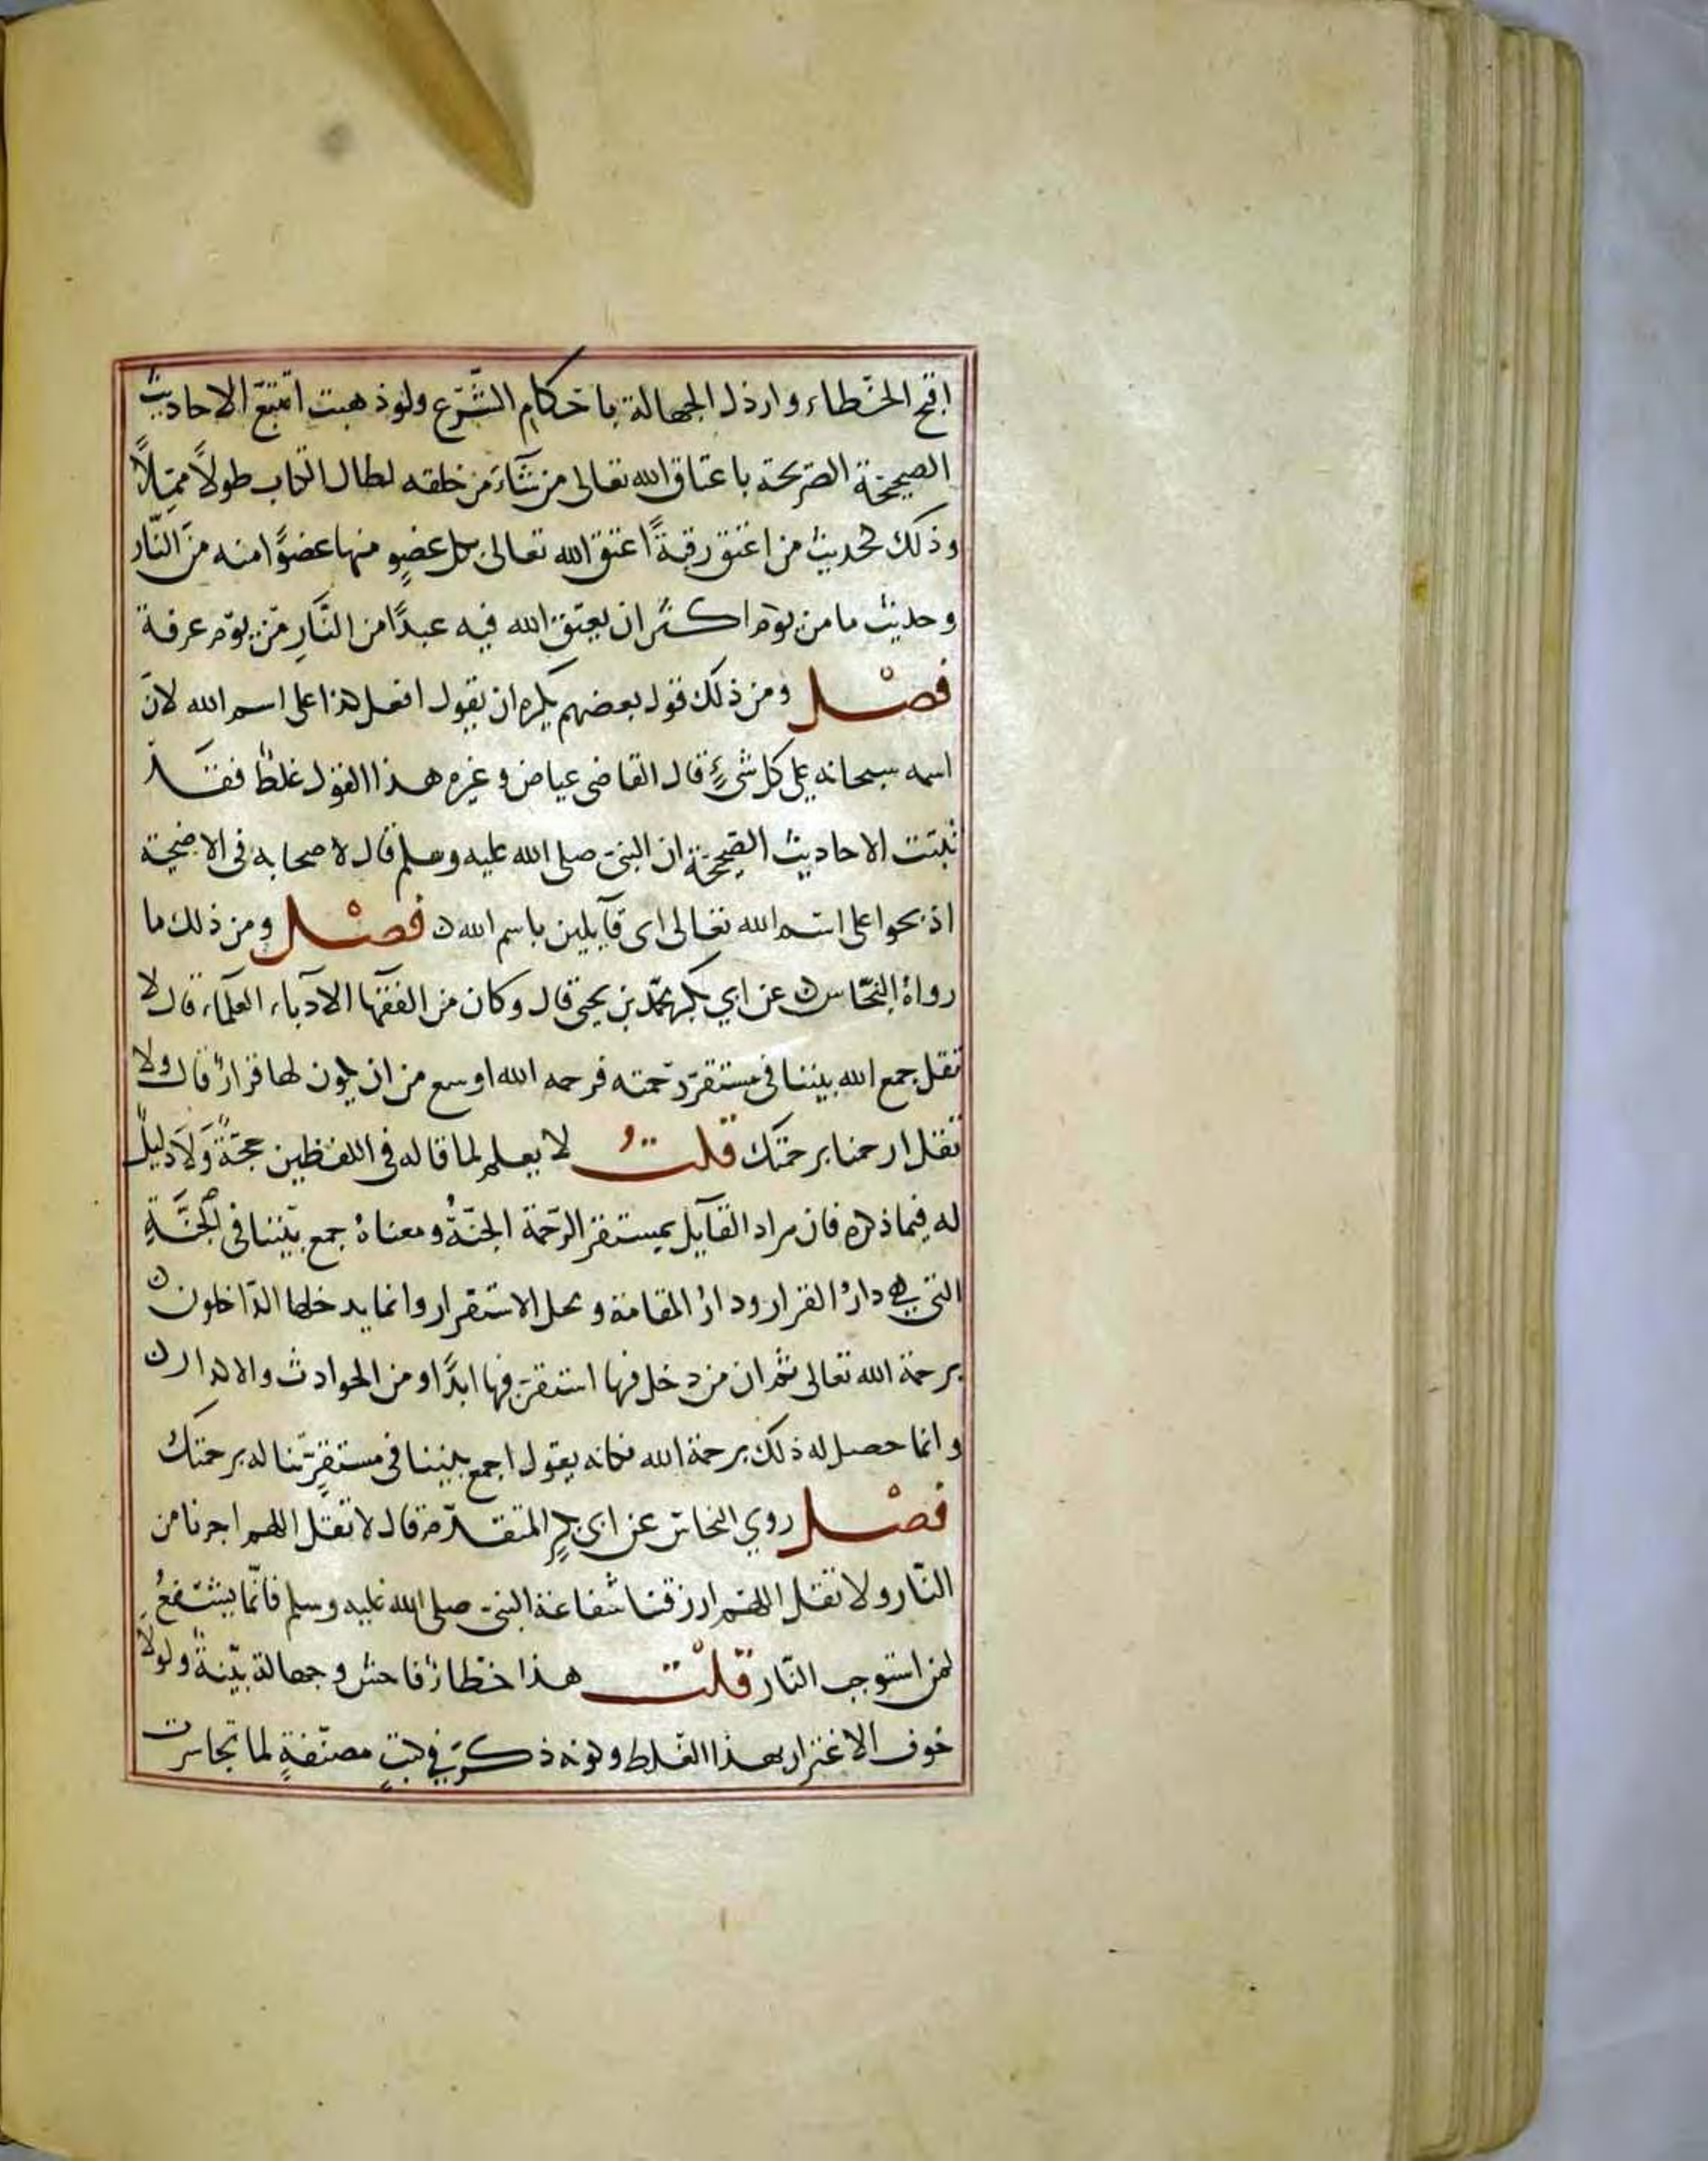 اقبح الخطاء وارذل الجهالة باحكام الشرع ولو ذهبت اتتبع الاحاديث
الصحيحة الصريحة باعتاق الله تعالى من شاء من خلقه لطال الكتاب طولاً مملاً
وذلك لحديث من اعتق رقبةً اعتق الله تعالى بكل عضوٍ منها عضوًا منه من النار
وحديث ما من يوم اكثر ان يعتق الله فيه عبدًا من النار من يوم عرفة
فصل ومن ذلك قول بعضهم يكره ان يقول افعل هذا على اسم الله لان
اسمه سبحانه على كل شئ قال القاضى عياض وغيره هذا القول غلط فقد
ثبتت الاحاديث الصحيحة ان النبى صلى الله عليه وسلم قال لاصحابه فى الاضحية
اذبحوا على اسم الله تعالى اى قآيلين باسم الله فصل ومن ذلك ما
رواه النحاس عن ابي بكر محمد بن يحيى قال وكان من الفقها الادبآء العلمآء قال لا
تقل جمع الله بيننا فى مستقر رحمته فرحمه الله اوسع من ان يكون لها قرار قال ولا
تقل ارحمنا برحمتك قلت لا يعلم لما قاله فى اللفظين حجةً ولا دليل
له فيما ذكره فان مراد القآيل بمستقر الرحمة الجنة ومعناه جمع بيننا فى الجنةِ
التى هى دار القرار ودار المقامة ومحل الاستقرار وانما يدخلها الداخلون
برحمة الله تعالى ثم ان من دخل فيها استقر فيها ابدًا ومن الحوادث والاكدار
وانما حصل له ذلك برحمة الله فكانه يقول اجمع بيننا فى مستقرٍ تناله برحمتك
فصل روي النحاس عن ابى بكرٍ المتقدم قال لا تقل اللهم اجرنا من
النار ولا تقل اللهم ارزقنا شفاعة النبى صلى الله عليه وسلم فانما يتشفع
لمن استوجب النار قلت هذا خطاء فاحش وجهالة بينة ولولا
خوف الاغترار بهذا الغلط وكونه ذكر في كتبٍ مصنفةٍ لما تجاسرت